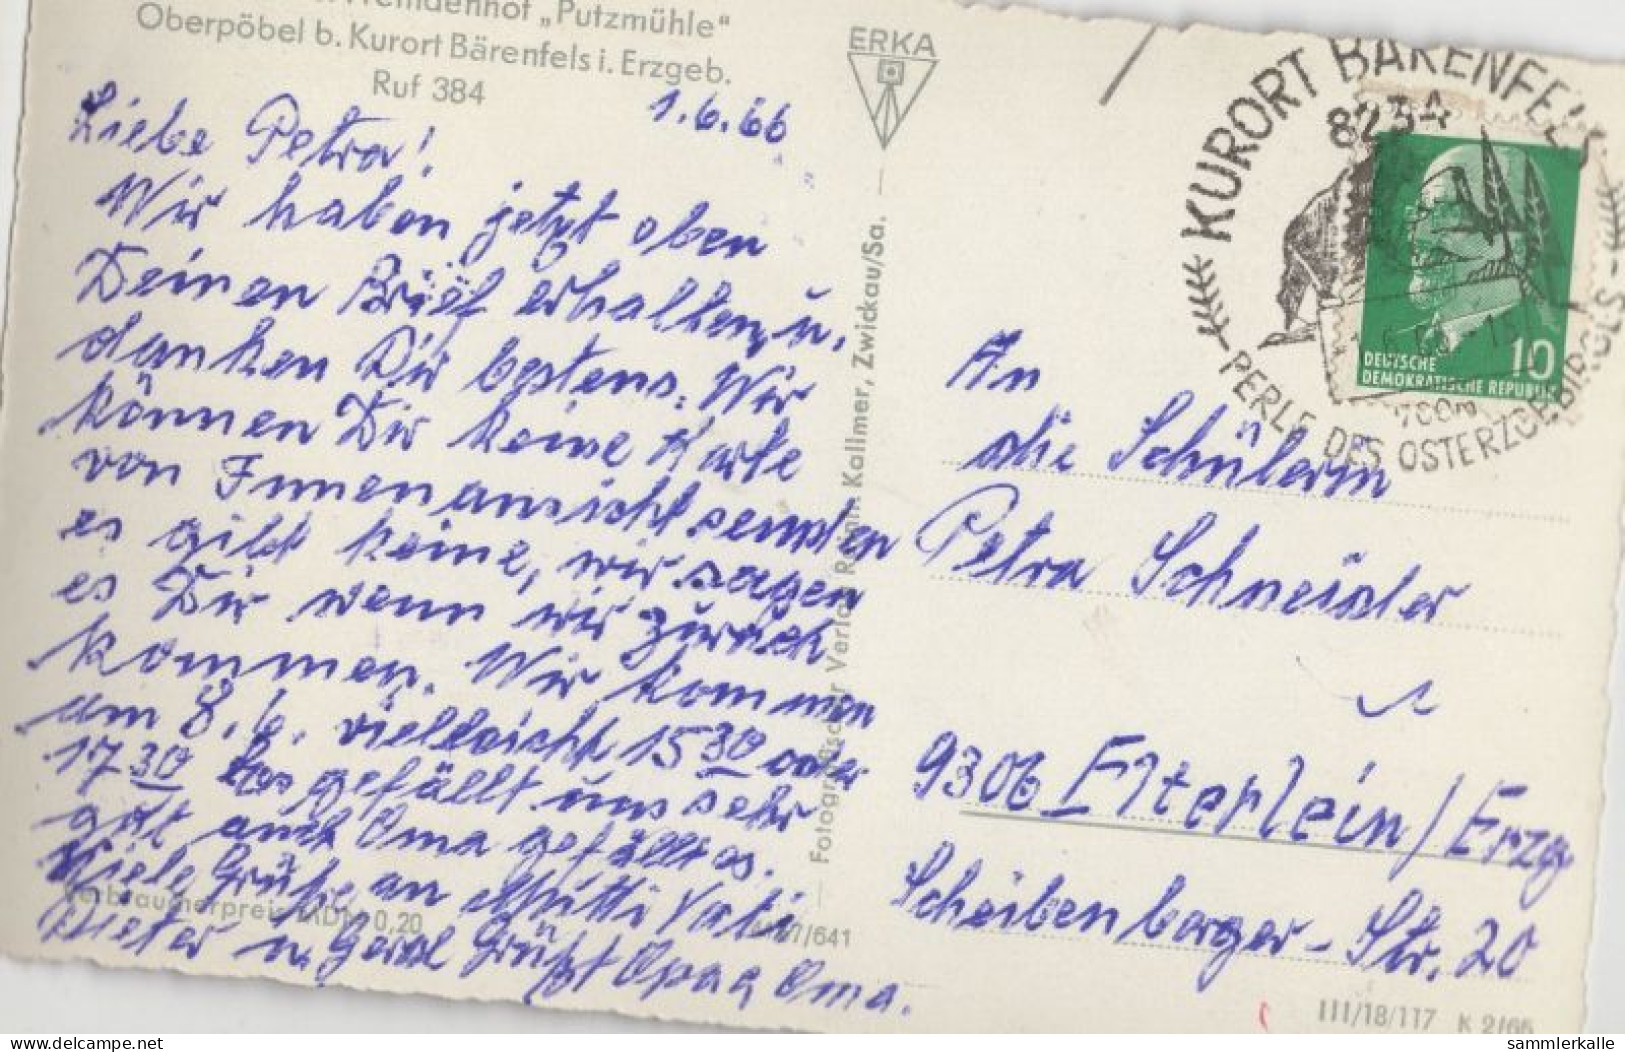 Fremdenhof „Putzmühle"
Oberpöbel b. Kurort Bärenfels i. Erzgeb.
Ruf 384
1.6.66
Liebe Petra!
Wir haben jetzt oben
Deinen Brief erhalten u.
danken Dir bestens. Wir
können Dir keine Karte
von Innenansicht senden
es gibt keine, wir sagen
es Dir wenn wir zurück
kommen. Wir kommen
am 8.6. vielleicht 15 30 oder
17 30 Es gefällt uns sehr
gut auch Oma gefällt es.
Viele Grüße an Mutti Vati
Dieter u. Gerd Grüßt Opa u Oma.
Verbraucherpreis MDN 0,20
/641
ERKA
Fotografischer Verlag Kallmer, Zwickau/Sa.
KURORT BÄRENFELS
8234
PERLE DES OSTERZGEBIRGES
DEUTSCHE
DEMOKRATISCHE REPUBLIK
10
An
die Schülerin
Petra Schneider
9306 Elterlein/Erzg
Scheibenberger-Str. 20
III/18/117 K 2/66
sammlerkalle
delcampe.net